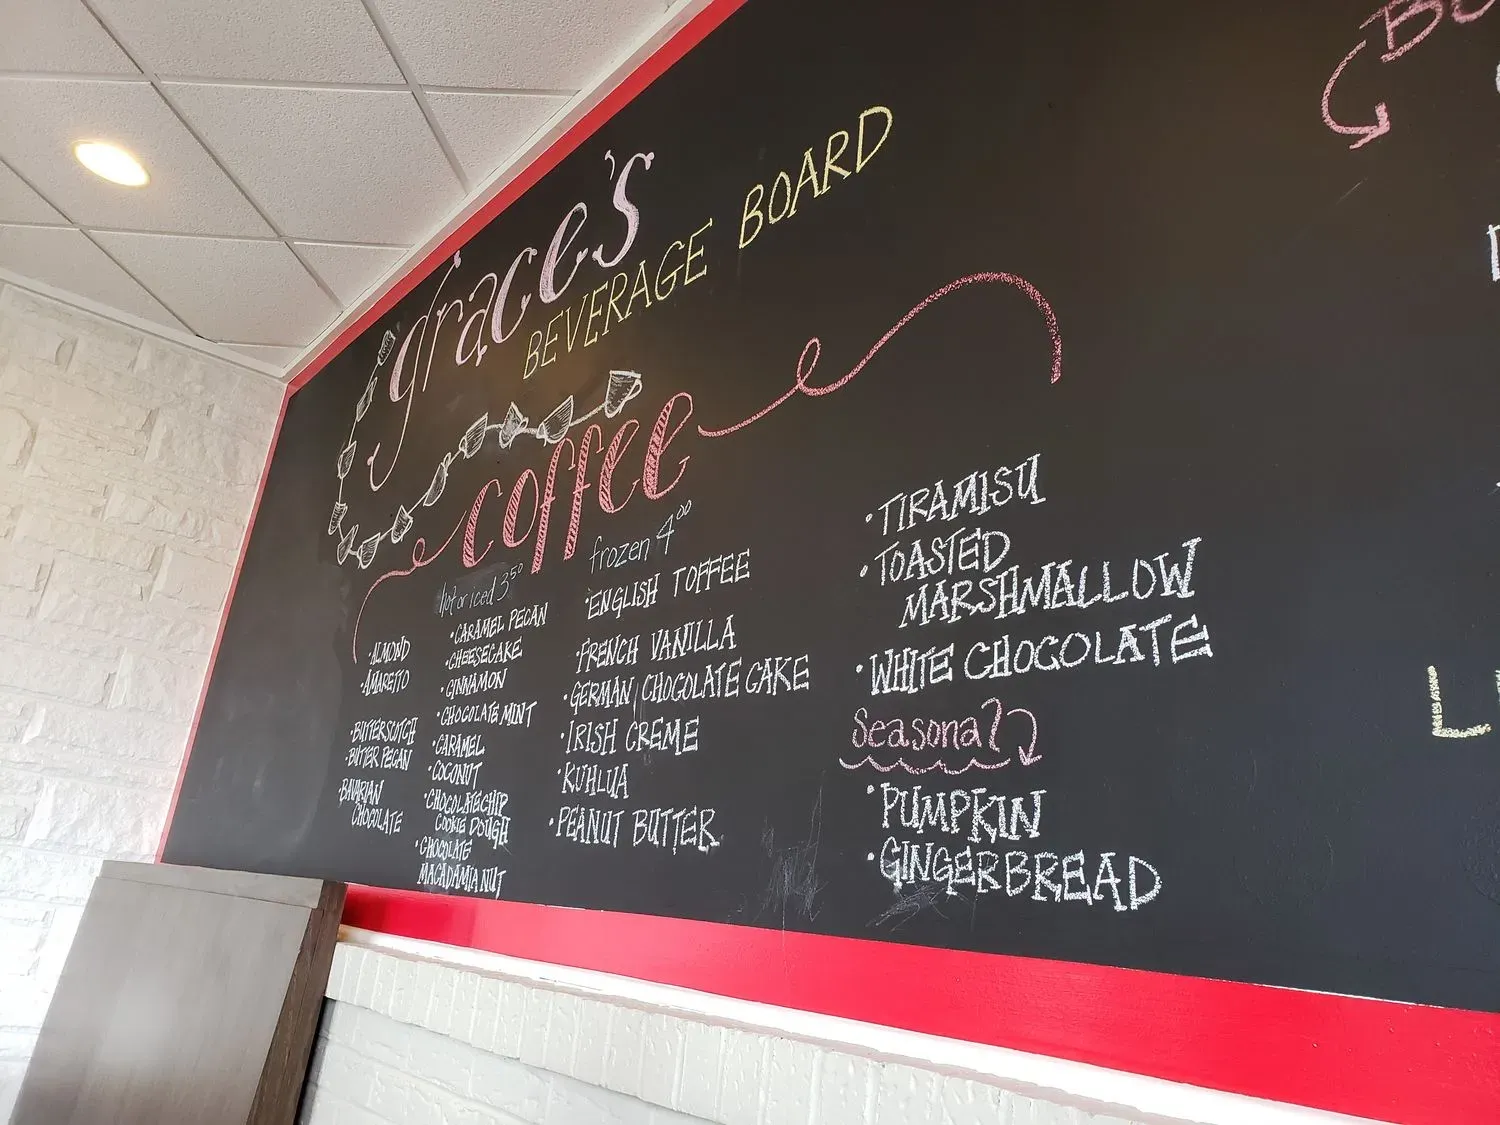 grace's
BEVERAGE BOARD
coffee
hot or iced 3⁵⁰
frozen 4⁰⁰
·ALMOND
·AMARETTO
·BUTTERSCOTCH
·BUTTER PECAN
·BAVARIAN
CHOCOLATE
·CARAMEL PECAN
·CHEESECAKE
·CINNAMON
·CHOCOLATE MINT
·CARAMEL
·COCONUT
·CHOCOLATE CHIP
COOKIE DOUGH
·CHOCOLATE
MACADAMIA NUT
·ENGLISH TOFFEE
·FRENCH VANILLA
·GERMAN CHOCOLATE CAKE
·IRISH CREME
·KUHLUA
·PEANUT BUTTER
·TIRAMISU
·TOASTED
MARSHMALLOW
·WHITE CHOCOLATE
Seasonal
·PUMPKIN
·GINGERBREAD